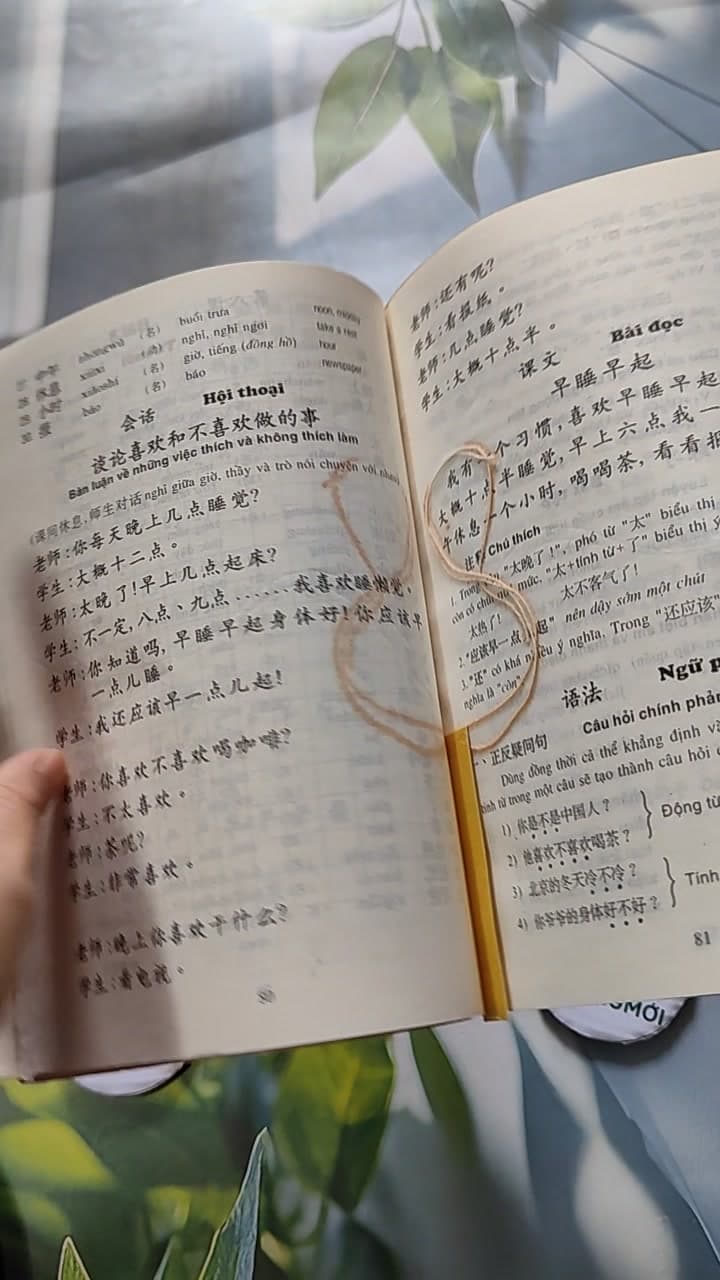 27 中午 zhōngwǔ (名) buổi trưa noon, midday
28 休息 xiūxi (动) nghỉ, nghỉ ngơi take a rest
29 小时 xiǎoshí (名) giờ, tiếng (đồng hồ) hour
30 报 bào (名) báo newspaper
会话 Hội thoại
谈论喜欢和不喜欢做的事
Bàn luận về những việc thích và không thích làm
(课间休息,师生对话 nghỉ giữa giờ, thầy và trò nói chuyện với nhau)
老师:你每天晚上几点睡觉?
学生:大概十二点。
老师:太晚了!早上几点起床?
学生:不一定,八点、九点......我喜欢睡懒觉,
老师:你知道吗,早睡早起身体好!你应该早
一点儿睡。
学生:我还应该早一点儿起!
老师:你喜欢不喜欢喝咖啡?
学生:不太喜欢。
老师:茶呢?
学生:非常喜欢。
老师:晚上你喜欢干什么?
学生:看电视。
80
老师:还有呢?
学生:看报纸。
老师:几点睡觉?
学生:大概十点半。
课文 Bài đọc
早睡早起
我有 个习惯,喜欢早睡早起
大概十点半睡觉,早上六点我一
午休息一个小时,喝喝茶,看看报
Chú thích
1. Trong "太晚了!", phó từ "太" biểu thị
còn có chút mức, "太+tính từ+了" biểu thị ý
太热了! 太不客气了!
2. "应该早一点 起" nên dậy sớm một chút
3. "还" có khá nhiều ý nghĩa, Trong "还应该"
nghĩa là "còn".
语法 Ngữ p
一、正反疑问句 Câu hỏi chính phản
Dùng đồng thời cả thể khẳng định và
tính từ trong một câu sẽ tạo thành câu hỏi c
1) 你是不是中国人? Động từ
2) 他喜欢不喜欢喝茶?
3) 北京的冬天冷不冷? Tính
4) 你爷爷的身体好不好?
81
MỚI